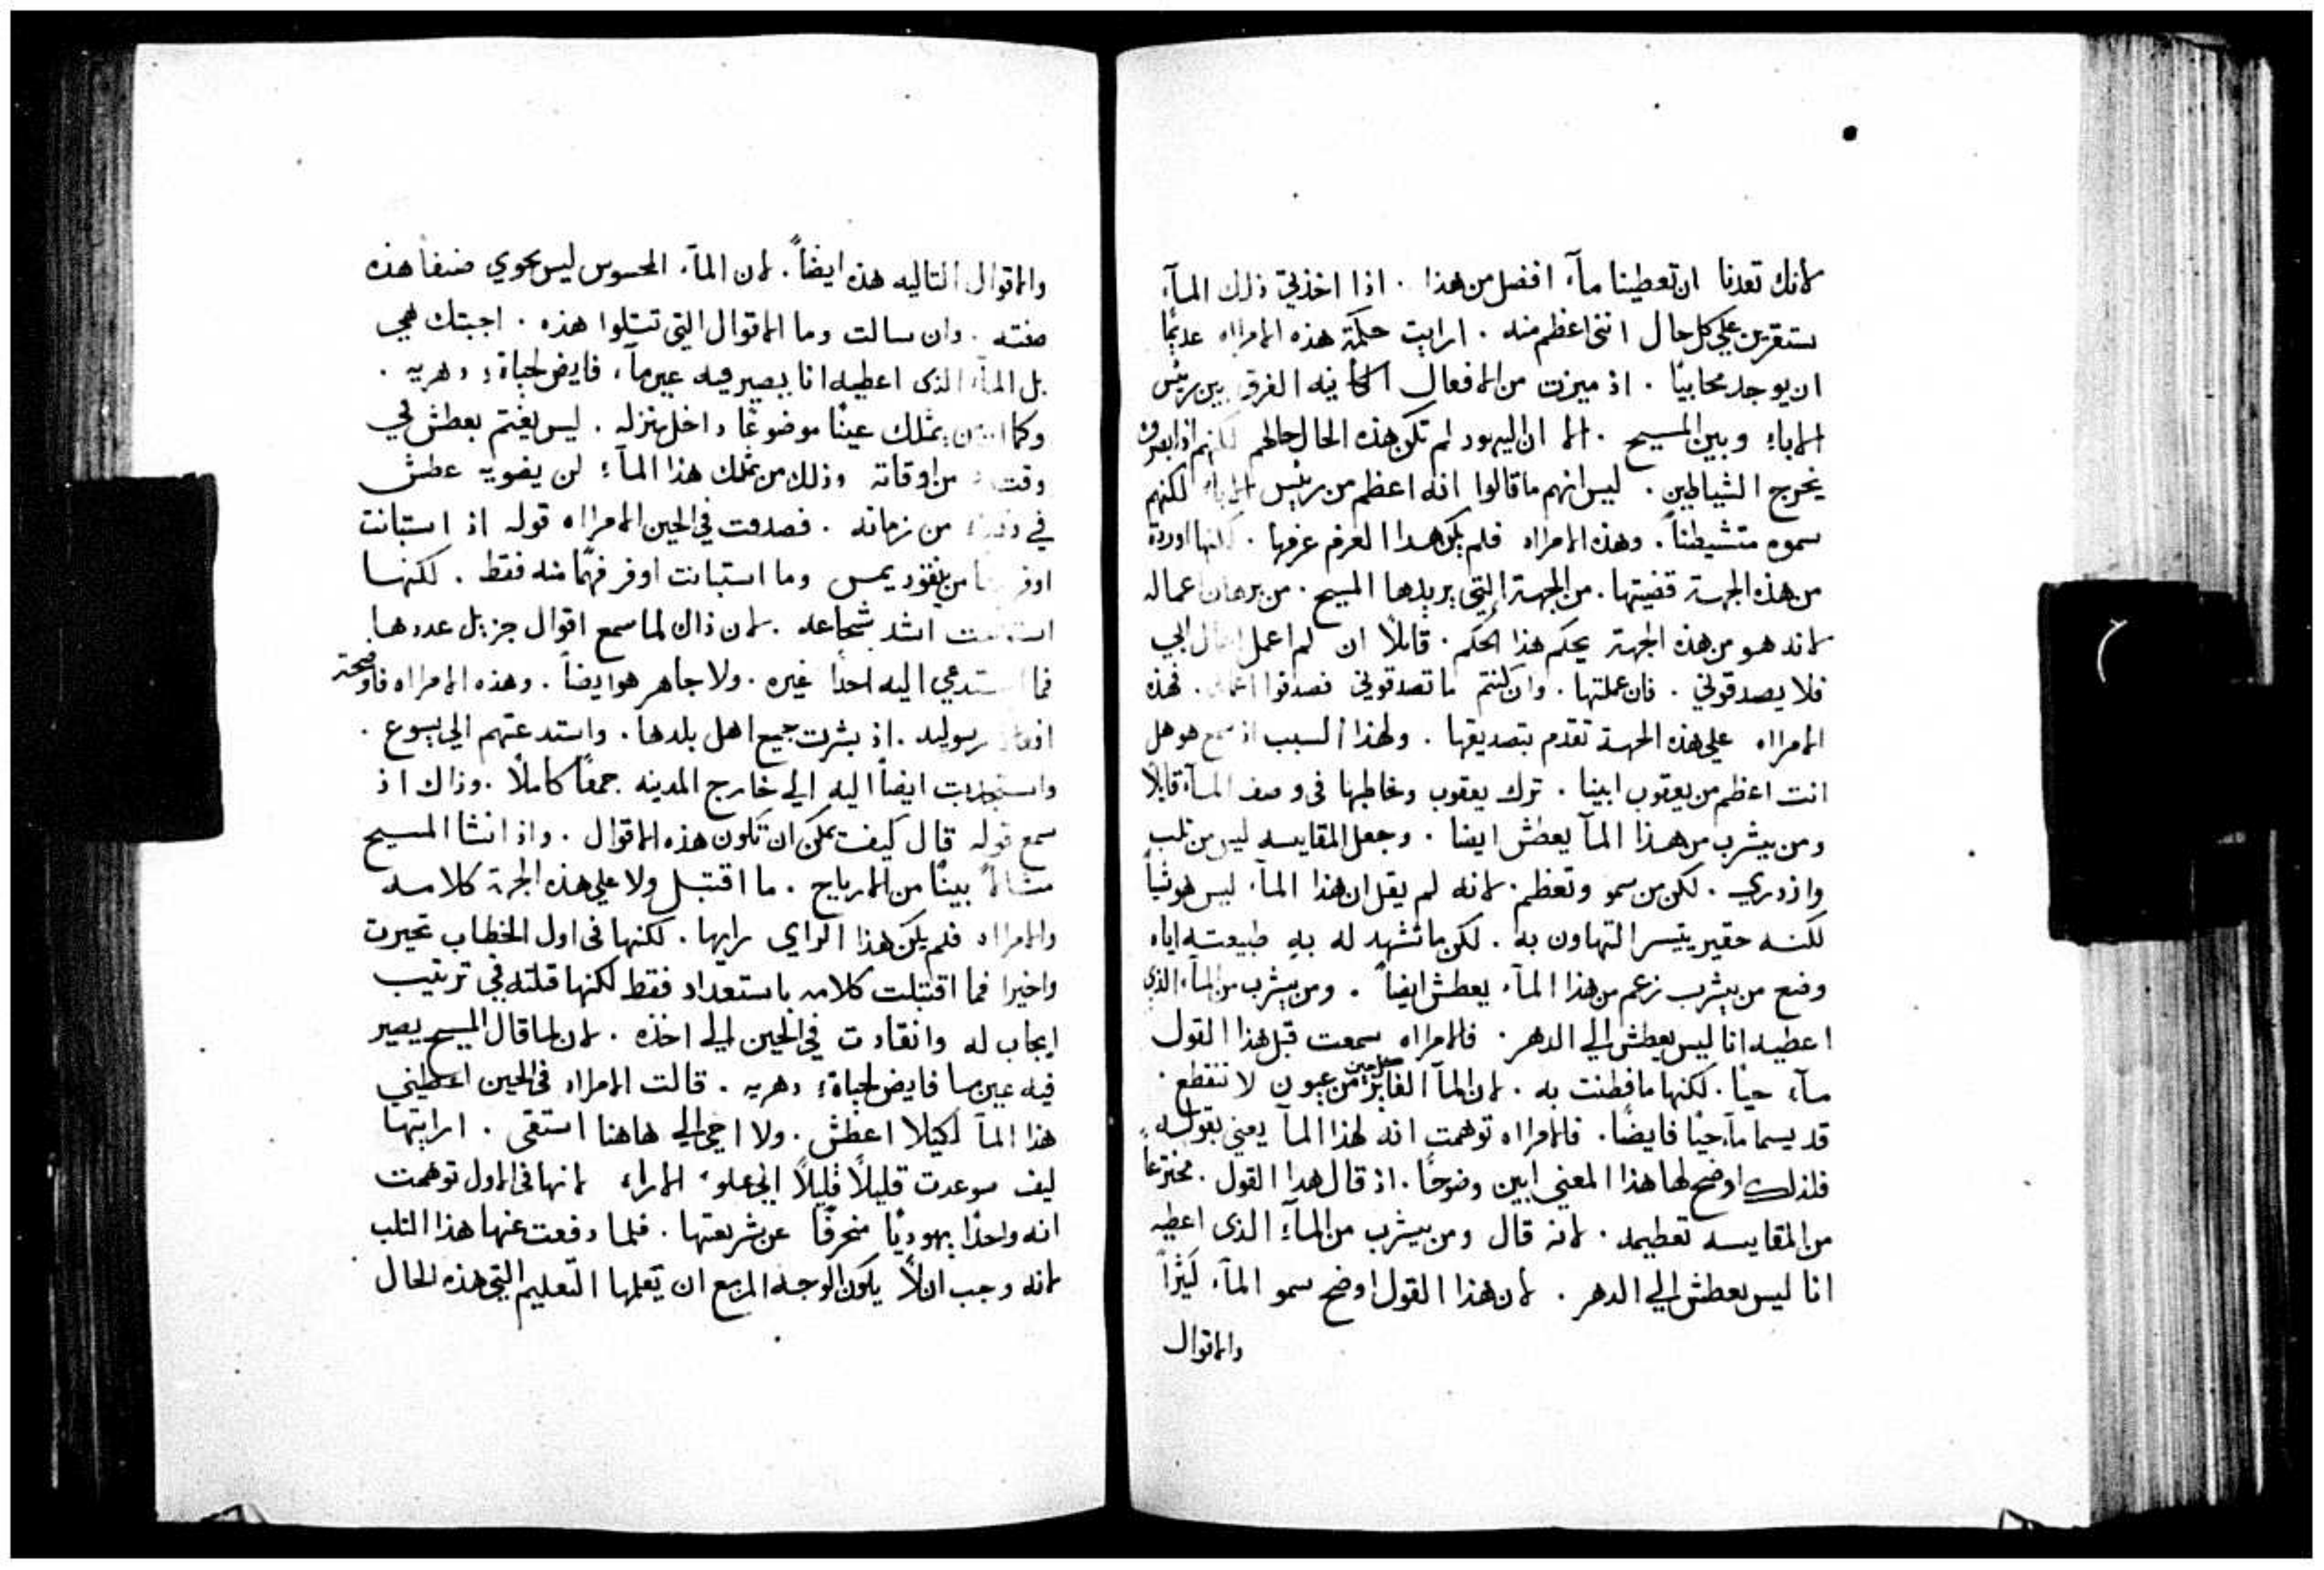 لانك تعدنا ان تعطينا مآء افضل من هذا . اذا اخذتي ذلك المآء
ستقرين علي كل حال انني اعظم منه . ارايت حكمة هذه الامراه عديمًا
ان يوجد محابيًا . اذ ميزت من الافعال الكاينه الفرق بين رئيس
الاباء وبين المسيح . الا ان اليهود لم تكن هذه الحال حالهم لكنهم اذ ابصروه
يخرج الشياطين . ليس انهم ما قالوا انه اعظم من رئيس الاباء لكنهم
سموه متشيطناً . وهذه الامراه فلم يكن هدا الغرم غرمها . لكنها اوردة
من هذه الجهة قضيتها . من الجهة التي يريدها المسيح . من برهان اعماله
لانه هو من هذه الجهة يحكم هذا الحكم . قايلاً ان لم اعمل اعمال ابي
فلا يصدقوني . فان عملتها . وان كنتم ما تصدقوني فصدقوا اعمالي . فهذه
الامراه علي هذه الجهة تقدم بتصديقها . ولهذا السبب اذ سمع هو هل
انت اعظم من يعقوب ابينا . ترك يعقوب وخاطبها فى وصف المآء قايلاً
ومن يشرب من هذا المآ يعطش ايضا . وجعل المقايسه ليس من ثلب
وازدري . لكن من سمو وتعظم . لانه لم يقل ان هذا المآء ليس هو شياً
لكنه حقير يتيسر التهاون به . لكن ما تشهد له به طبيعته اياه
وضع من يشرب زعم من هذا المآء يعطش ايضاً . ومن يشرب من المآء الذي
اعطيه انا ليس يعطش الي الدهر . فالامراه سمعت قبل هذا القول
مآء حيًا . لكنها ما فطنت به . لان المآ الفايز من عيون لا تنقطع .
قد يسما مآء حيًا فايضًا . فالامراه توهمت انه لهذا المآ يعني بقوله
فلذلك اوضح لها هذا المعني ابين وضوحًا . اذ قال هدا القول . مخترعاً
من المقايسه تعظيمه . لانه قال ومن يشرب من المآء الذى اعطيه
انا ليس يعطش الي الدهر . لان هذا القول اوضح سمو المآء كثراً
والاقوال
والاقوال التاليه هذه ايضاً . لان المآء المحسوس ليس يحوي صنفا هذه
صفته . وان سالت وما الاقوال التي تتلوا هذه . اجبتك هي
بل المآء الذى اعطيه انا يصير فيه عين مآء فايض لحياة دهريه .
وكما ان من يمتلك عينًا موضوعًا داخل منزله . ليس يغتم بعطش في
وقت من اوقاته وذلك من تملك هذا المآء لن يضويه عطش
في وقت من زمانه . فصدقت في الحين الامراه قوله اذ استبانت
اوفر من نيقوديمس وما استبانت اوفر فهمًا منه فقط . لكنها
استبانت اشد شجاعه . لان ذاك لما سمع اقوال جزيل عددها
فما استدعي اليه احدًا غيره . ولا جاهر هو ايضاً . وهذه الامراه فاوضحة
افعال رسوليه . اذ بشرت جميع اهل بلدها . واستدعتهم الي يسوع .
واستجذبت ايضاً اليه الي خارج المدينه جمعًا كاملًا . وذاك اذ
سمع قوله قال كيف يمكن ان تكون هذه الاقوال . واذ انشا المسيح
مثالاً بينًا من الارياح . ما اقتبل ولا علي هذه الجهة كلامه
والامراه فلم يكن هذا الراي رايها . لكنها فى اول الخطاب تحيرت
واخيرا فما اقتبلت كلامه باستعداد فقط لكنها قلته في ترتيب
ايجاب له وانقادت في الحين الي اخذه . لان لما قال المسيح يصير
فيه عين ما فايض لحياة دهريه . قالت الامراه فى الحين اعطيني
هذا المآ لكيلا اعطش . ولا اجي الي هاهنا استقى . ارايتها
كيف صوعدت قليلاً قليلاً الي علو الاراء لانها فى الاول توهمت
انه واحدًا يهوديًا منحرفًا عن شريعتها . فلما دفعت عنها هذا الثلب
لانه وجب الاّ يكون الوجه المزمع ان يعلمها التعليم التي هذه الحال